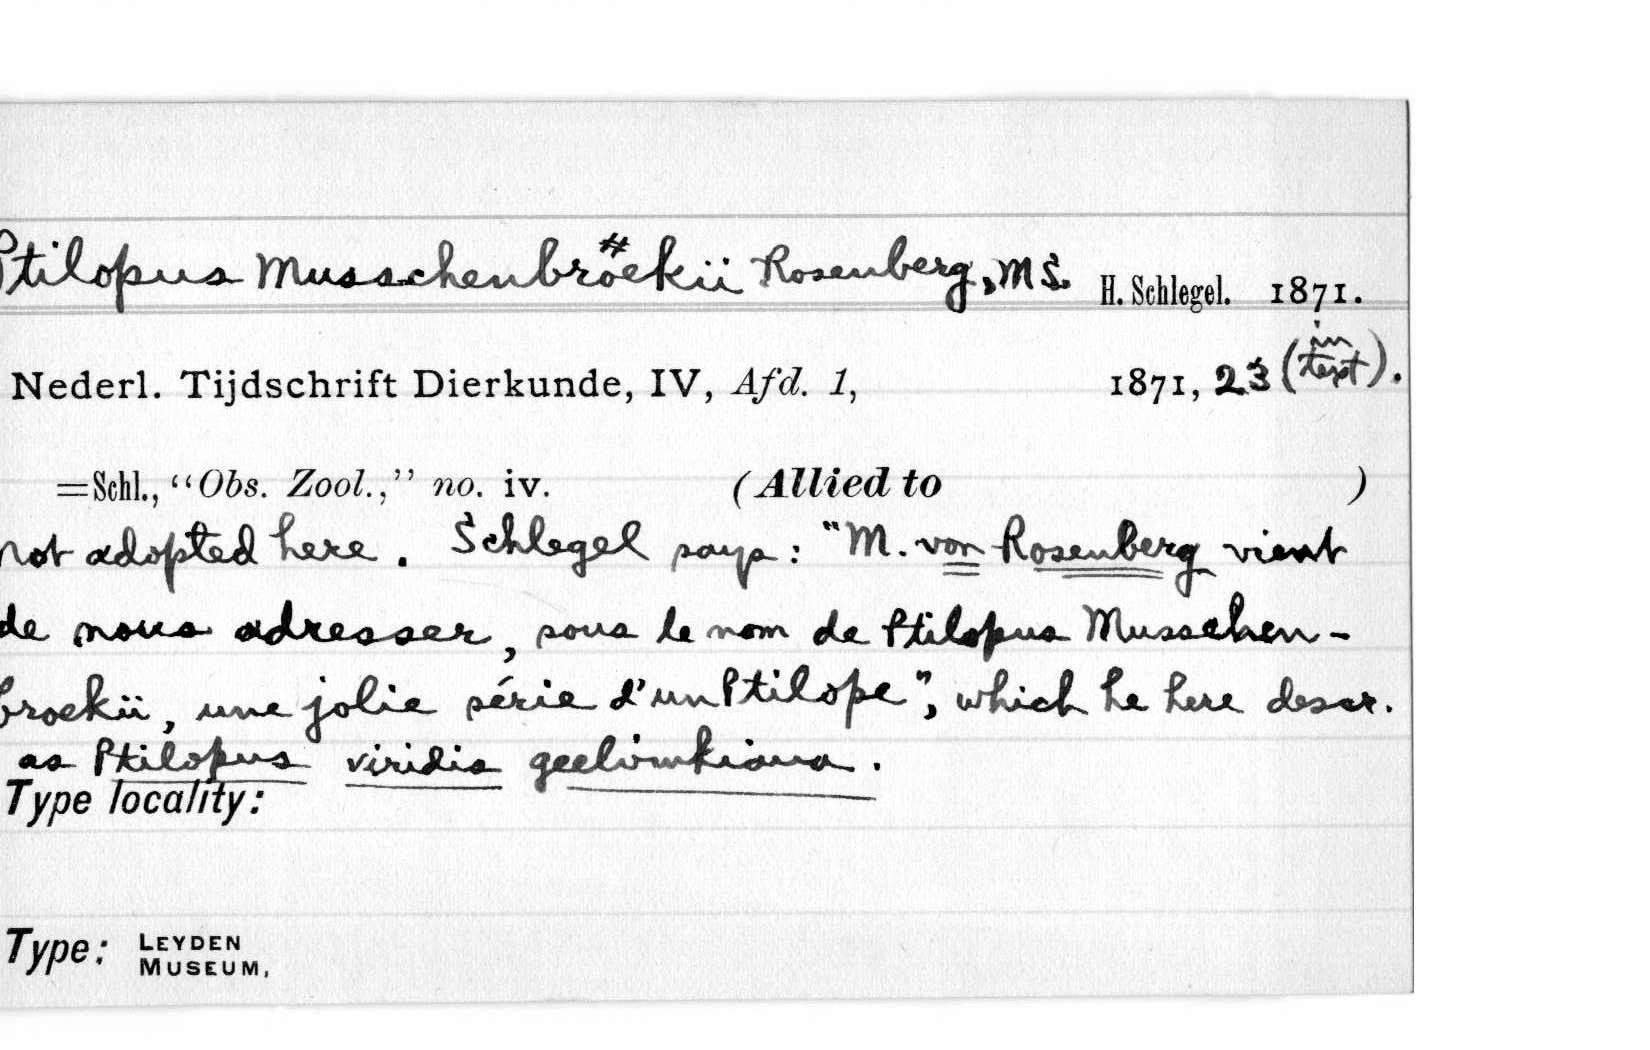 Ptilopus Musschenbröekii Rosenberg, MS. H. Schlegel. 1871.
Nederl. Tijdschrift Dierkunde, IV, Afd. 1, 1871, 23 (in text).
=Schl., “Obs. Zool.,” no. iv. (Allied to )
Not adopted here. Schlegel says: "M. von Rosenberg vient
de nous adresser, sous le nom de Ptilopus Musschen-
broekii, une jolie série d'un Ptilope", which he here descr.
as Ptilopus viridis geelvinkiana.
Type locality:
Type: LEYDEN
MUSEUM,